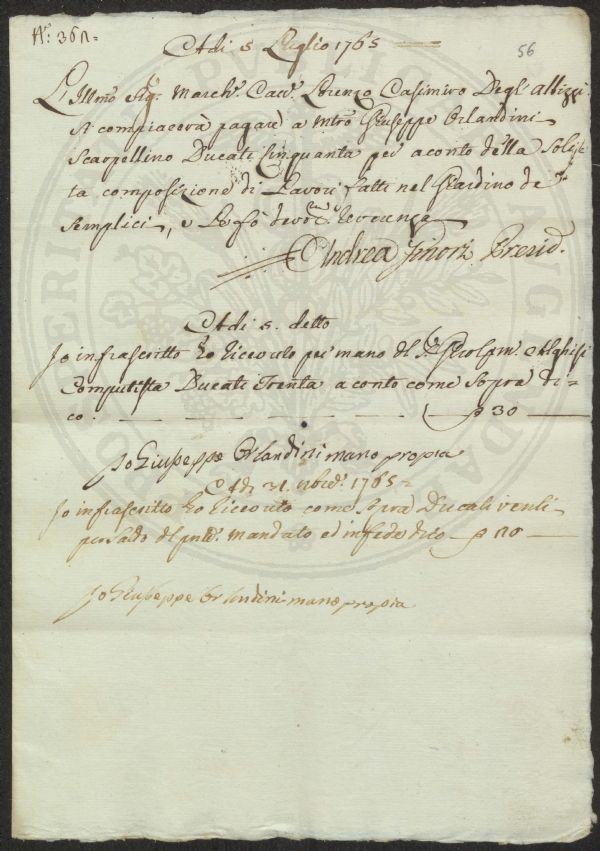 56
Adi 5 Luglio 1765
L'Illmo Sigr. March. Cav. Lorenzo Casimiro Degl' albizzi
si compiacerà pagare a Mro Giuseppe Orlandini
Scarpellino Ducati Cinquanta per aconto della
ta composizione di Lavori fatti nel Giardino de
Semplici, e Le fò reverenza
Andrea Ginori Presid.
Adi 5. detto
Io infrascritto hò ricevuto per mano del Alghisi
Computista Ducati Trenta aconto come Sopra di-
co 30
Io Giuseppe Orlandini mano propia
Adi 31. 1765
Io infrascritto hò ricevuto come Sopra Ducati venti
per saldo del mandato ed in fede dico 20
Io Giuseppe Orlandini mano propia